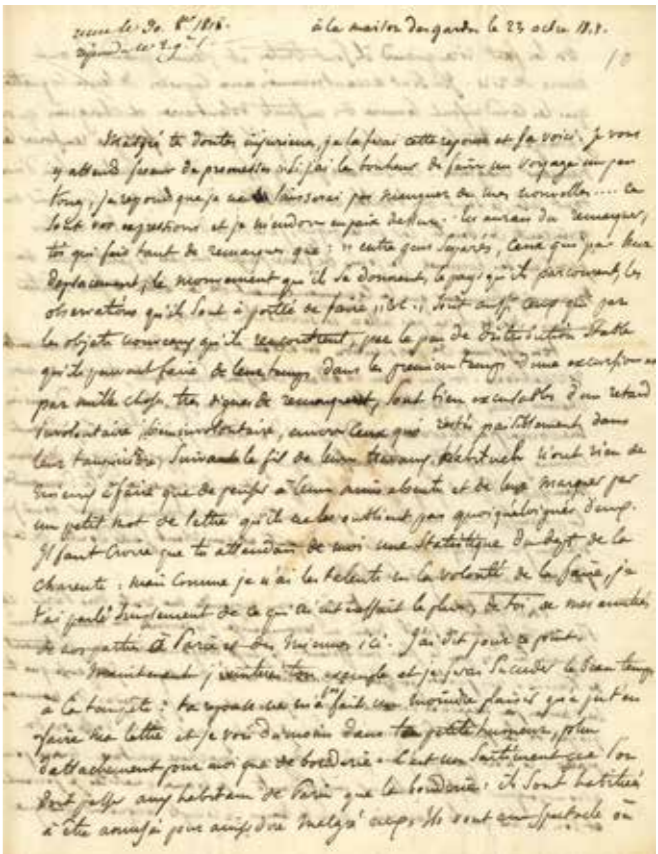 reçue le 30. 8bre 1818.
répondu le 2 9bre
à la maison des gardes le 23 octre 1818.
10
Malgré tes doutes injurieux, je la ferai cette reponse et la voici. Je vous
y attends faiseur de promesses si j'ai le bonheur de faire un voyage un peu
long, je répond que je ne laisserai pas manquer de mes nouvelles.... ce
sont vos expressions et je m'endors en paix dessus. tu aurais du remarquer,
toi qui fais tant de remarques que : entre gens separés, ceux qui par leur
deplacement, le mouvement qu'ils se donnent, le pays qu'ils parcourent, les
observations qu'ils sont à portée de faire, sont aussi ceux qui par
les objets nouveaux qu'ils rencontrent, par le peu de distribution stable
qu'ils peuvent faire de leur temps dans les premiers temps d'une excursion et
par mille choses très dignes de remarques, sont bien excusables d'un retard
involontaire, bien involontaire, envers ceux qui restés paisiblement dans
leur taupinière, suivant le fil de leurs travaux habituels n'ont rien de
mieux à faire que de penser à leurs amis absents et de leur marquer par
un petit mot de lettre qu'ils ne les oublient pas quoiqu'eloignés d'eux.
Il faut croire que tu attendais de moi une statistique du dept de la
charente : mais comme je n'ai les talents ni la volonté de la faire, je
t'ai parlé simplement de ce qui m'interessait le plus, de toi, de mes amitiés
de nos parties à Paris et des miennes ici. J'ai dit pour ce point.
Maintenant j'imiterai ton exemple et je ferai succeder le beau temps
à la tempête : ta reponse ne m'a fait un moindre plaisir qu'a pu t'en
faire ma lettre et je vois du moins dans ta petite humeur, plus
d'attachement pour moi que de bouderie. C'est un sentiment que l'on
doit passer aux habitans de Paris que la bouderie : ils sont habitués
à être amusés pour ainsi dire malgré eux, ils vont au spectacle où